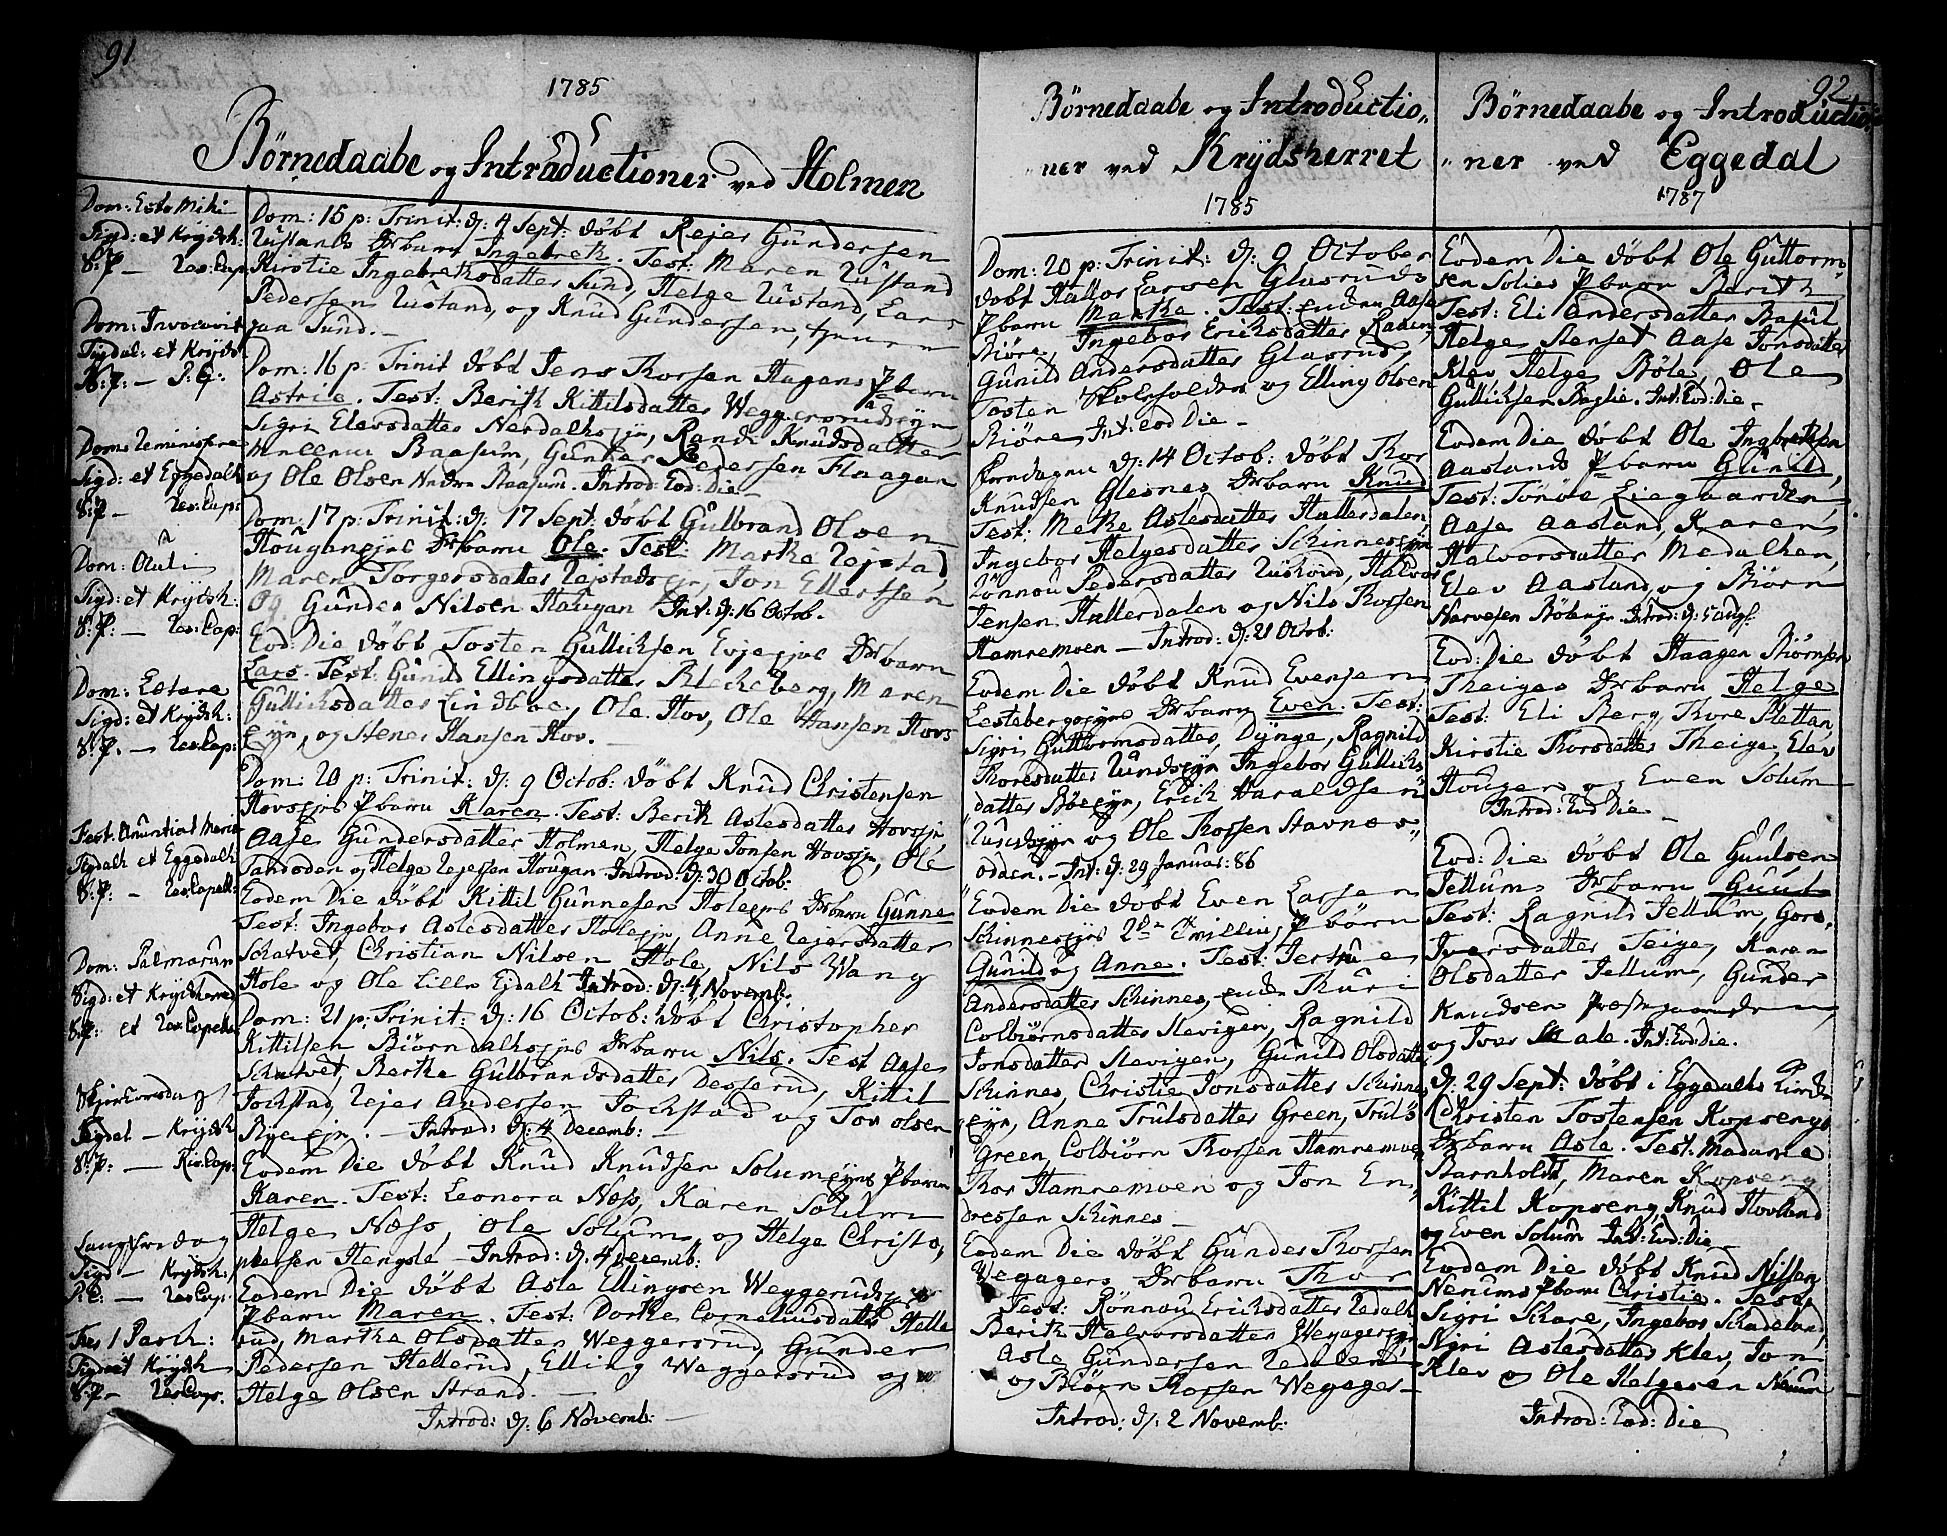 91
1785
Börnedaabe og Introductioner ved Holmen
Dom: Esto Mihi
Sigd: et Krydsh:
S: P — Res: Cap
Dom: Invocavit
Sigdal: et Krydsh
N: P: — P: C:
Dom: Reminiscere
Sigd: et Eggedalh
S: P — Res: Cap:
Dom: Oculi
Sigd: et Krydsh:
S: P: — Res: Cap:
Dom: Letare
Sigd: et Krydsh:
S: P. — Res: Cap:
Fest: Anuntiat Maria
Sigdalh et Eggedalh
S: P: — Res: Capell:
Dom: Palmarum
Sigd: et Krydsherred
S: P: et Res: Capella
Skjertorsdag
Sigdal — Krydsh
S: P: — Res: Cap:
Langfredag
Sigd — Krydsh:
P: C: — Res: Cap:
Fer 1 Pasch:
Sigd et Krydsh
S: P — Res: Cap.
Dom: 15 p: Trinit: d: 4 Sept: döbt Rejer Gundersen
Rustands Drbarn Ingebrek. Test: Maren Rustand
Kirstie Ingebreksdatter Sund, Helge Rustand, Lars
Pedersen Rustand, og Knud Gundersen,
paa Sund. —
Dom: 16 p: Trinit döbt Jens Thorsen Hagens Pbarn
Astrie. Test: Berith Kittilsdatter Weggersrudejn
Sigri Elevsdatter Nerdalhsejn, Randi Knudsdatter
Baasum, Gunder Pedersen Flaagan
og Ole Olsen Nedre Baasum. Introd: Eod: Die —
Dom: 17 p: Trinit: d: 17 Sept: döbt Gulbrand Olsen
Hougansejes Drbarn Ole. Test: Marthe Rejstad
Maren Torgersdatter Rejstadejn, Jon Ellertsen
Og Gunder Nilsen Haugan Int: d: 16 Octob.
Eod: Die döbt Tosten Gulliksen Evjesejes Drbarn
Lars. Test: Gunild Ellingsdatter Bleckeberg, Maren
Gulliksdatter Lindboe, Ole Hov, Ole Hansen Hovs
ejn, og Stener Hansen Hov. —
Dom: 20 p: Trinit: d: 9 Octob: döbt Knud Christensen
Hovsejes Pbarn Karen. Test: Berith Aslesdatter Hovsejn
Aase Gundersdatter Holmen, Helge Jonsen Hovsejn, Ole
Sandsoden og Helge Rejersen Hougan Introd: d: 30 Octob:
Eodem Die döbt Kittil Gunnesen Holeejes Drbarn Gunne
Test: Ingebor Aslesdatter Holeejn, Anne Rejersdatter
Schatvet, Christian Nilsen Hole, Nils Wang
Hole og Ole Lille Ejdalh Introd: d: 4 Novemb:
Dom: 21 p: Trinit: d: 16 Octob: döbt Christopher
Kittilsen Biörndalhsejes Drbarn Nils. Test Aase
Schatvet, Berthe Gulbrandsdatter Desserud, Kittil
Jochstad, Rejer Andersen Jochstad og Tov Olsen
Ryeejn. — Introd: d: 4 Decemb: —
Eodem Die döbt Knud Knudsen Solumejns Pbarn
Karen. Test: Leonora Næss, Karen Solum
Helge Næss, Ole Solum og Helge Christo,
phersen Hengsle — Introd: d: 4 Decemb:
Eodem Die döbt Asle Ellingsen Weggerudsejes
Pbarn Maren. Test: Dorthe Corneliusdatter Helle
rud, Marthe Olsdatter Weggersrud, Gunder
Pedersen Hellerud, Elling Weggersrud og
Helge Olsen Strand. —
Introd: d: 6 Novemb: —
Börnedaabe og Introductio,,
ner ved Krydsherret
1785
Dom: 20 p: Trinit: d: 9 October
döbt Halvor Larsen Glasruds
Pbarn Marthe. Test: Aase
Biöre, Ingebor Eriksdatter Raaen,
Gunild Andersdatter Glasrud,
Tosten Skolesolden og Elling Olsen
Biöre, Int: Eod Die —
Fredagen d: 14 Octob: döbt Thor
Knudsen Glesnes Drbarn Knud
Test: Mette Aslesdatter Hallerdalen,
Ingebor Helgesdatter Schinnesejn
Rönnou Pedersdatter Ruskövd, Halvor
Jensen Hallerdalen og Nils Thorsen
Hamremoen — Introd: d: 21 Octob:
Eodem Die döbt Knud Evensen
Lestebergsejns Drbarn Even. Test:
Sigri, Guttormsdatter, Dynge, Ragnild
Thoresdatter Rundsejn Ingebor Gulliks,,
datter Böeejn, Erich Haraldsen
og Ole Thorsen Stavnes,,
odden. — Int: d: 29 Januar: 86
Eodem Die döbt Even Larsen
Schinnesejes 2de Tvilling Pbörn
Gunild og Anne. Test: Jertrue
Andersdatter Schinnes, Thuri
Colbiörnsdatter Slevigen, Ragnild
Jonsdatter Slevigen, Gunild Olsdatter
Schinnes, Christie Jonsdatter Schinnes
ejn, Anne Trulsdatter Green, Truls
Green, Colbiörn Thorsen Hamremoen
Thor Hamremoen og Jon En,
dressen Schinnes —
Eodem Die döbt Gunder Thorsen
Wegagers Drbarn Thor
Test: Rönnou Ericksdatter Redalh
Berith Halvorsdatter Wegagersejn
Asle Gundersen Redalen,
og Biörn Thorsen Wegager —
Introd: d: 2 Novemb:
92
Börnedaabe og Introductio
,,ner ved Eggedal
1787
Eodem Die döbt Ole Guttorm,,
sen Solies Pbarn Berith
Test: Eli Andersdatter Basul
Helge Stenset Aase Jonsdatter
Klev Helge Böle, Ole
Gulliksen Baglie. Int: Eod: Die —
Eodem Die döbt Ole Ingbretksen
Aaslands Pbarn Gunild,
Test: Tonöe Liegaarden,
Aase Aasland, Karen
Halvorsdatter Medalhen,
Elev Aasland, og Biörn
Narvesen Bölenejn Introd: d: 5 Augs.
Eod: Die döbt Haagen Biörnsen
Theiges Drbarn Helge
Test: Eli Berg, Thore Slettan,
Kirstie Thorsdatter Theige Elev
Houger og Even Solum
Introd: Eod Die —
Eod: Die döbt Ole Guulsen
Jellums Drbarn Guul
Test: Ragnild Jellum, Goro
Iversdatter Teige, Karen
Olsdatter Jellum, Gunder
Knudsen Prestegaarden,
og Iver Male. Int: Eod: Die.
d: 29 Sept: döbt i Eggedalhs Kirche
Christen Tostensen Kopsengs
Drbarn Asle. Test: Madame
Barnholdt, Maren Kopseng
Kittil Kopseng, Knud Hovland
og Even Solum Int: Eod: Die —
Eodem Die döbt Knud Nilsen
Nerums Pbarn Christie. Test:
Sigri Schare, Ingebor Schadeland,
Sigri Aslesdatter Klev, Jon
Klev og Ole Helgesen Nerum
Introd: Eod: Die